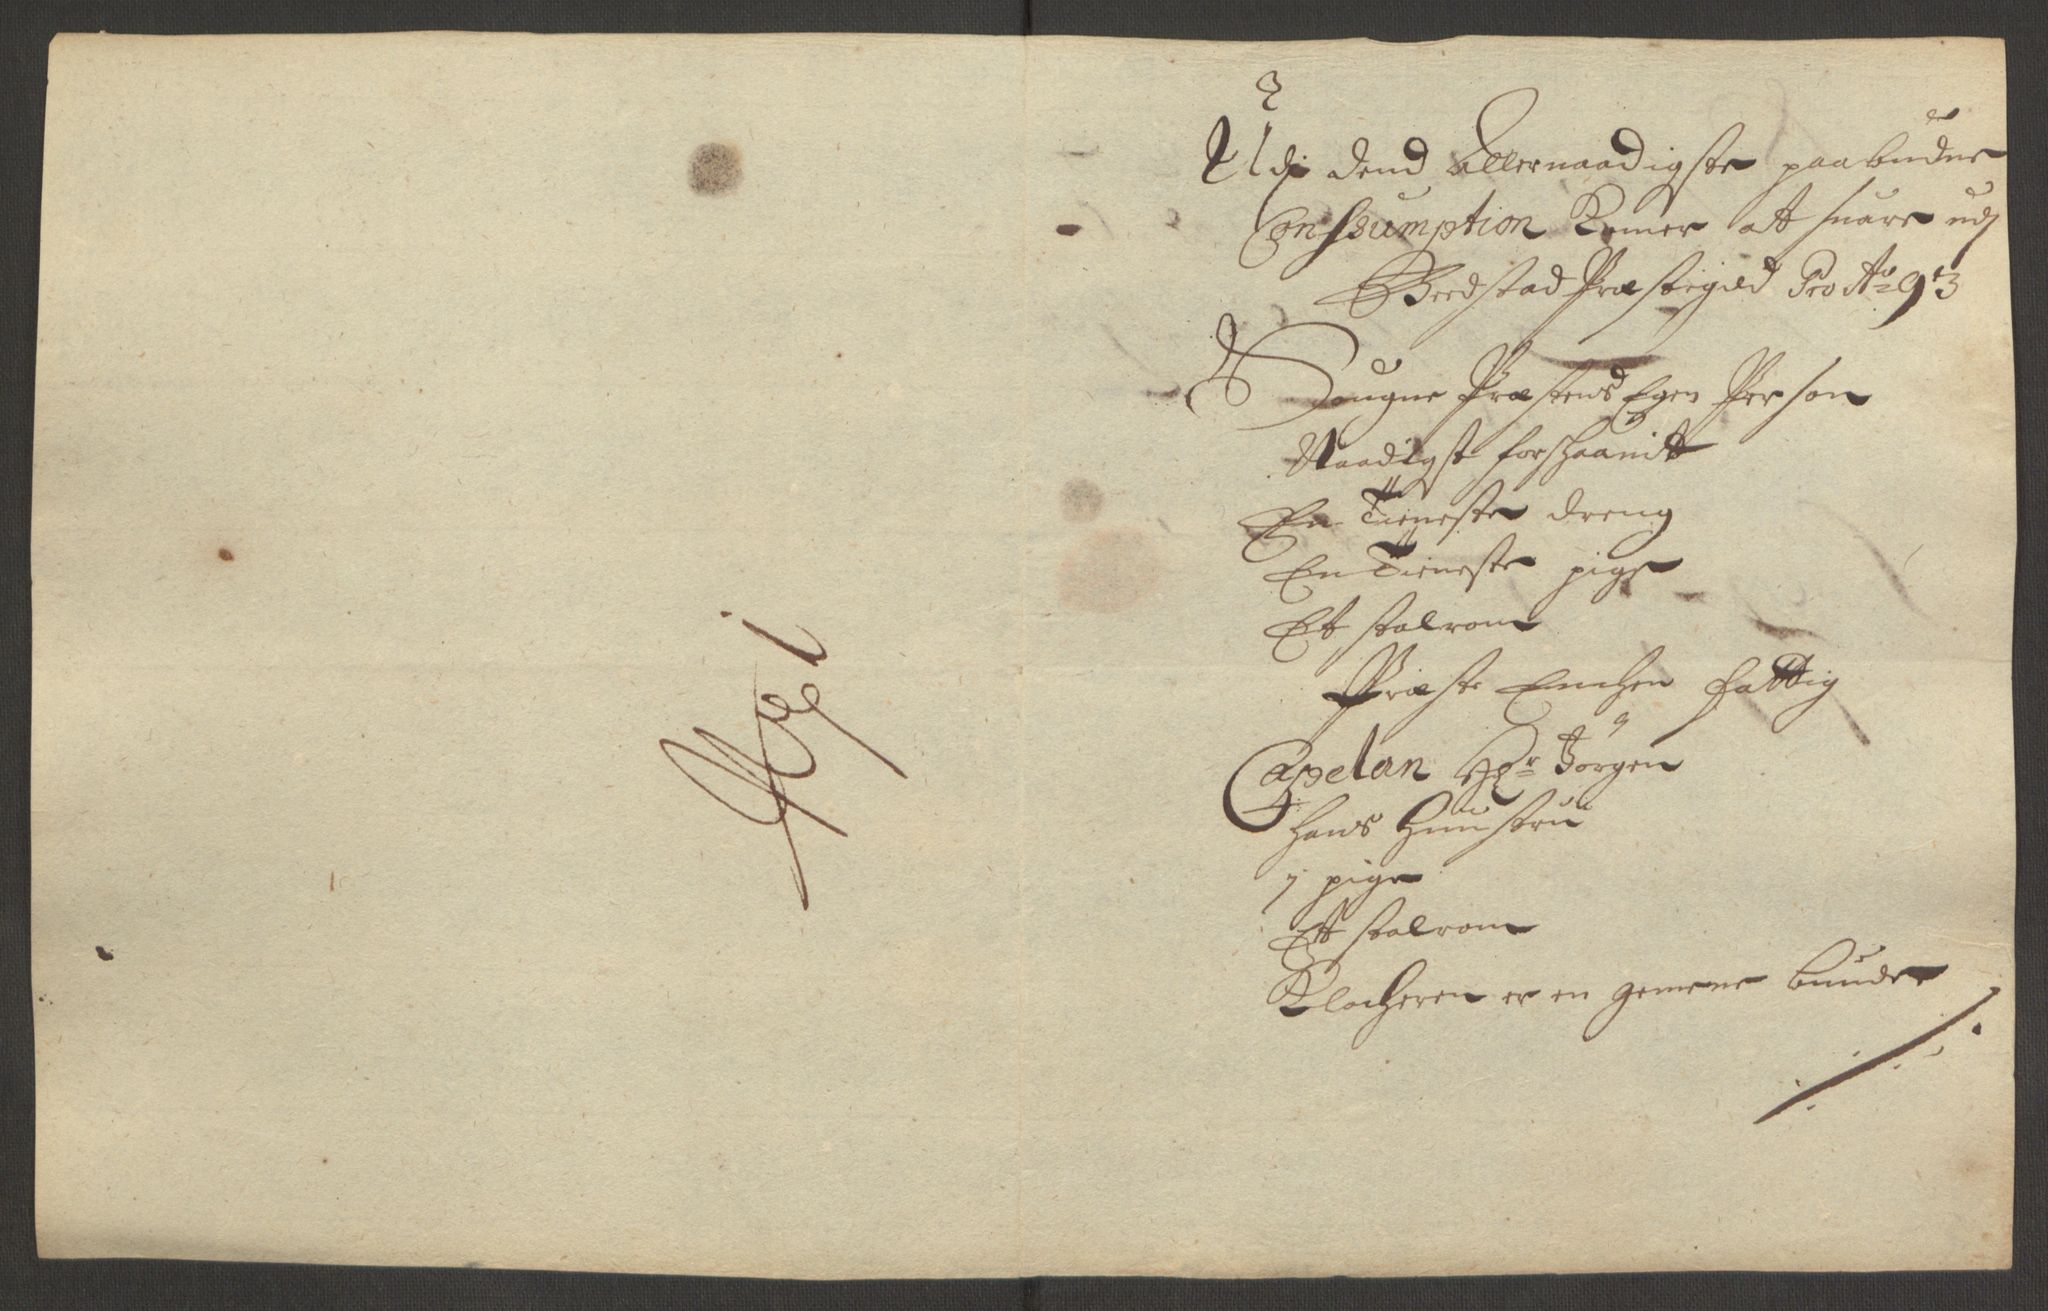 Udj dend Allernaadigste paabudne
Conssumption Komer att suare udj
Giedstad Præstegield Pro Ao 93
Sougne Præstens Egen Person
Naadigst forschaanit
En Tieneste dreng
En Tieneste pige
Et stalrom
Præste Enchen fattig
Capelan Hr Jørgen
hans Huustru
1 pige
Et stalrom
Klocheren er en gemene bunde